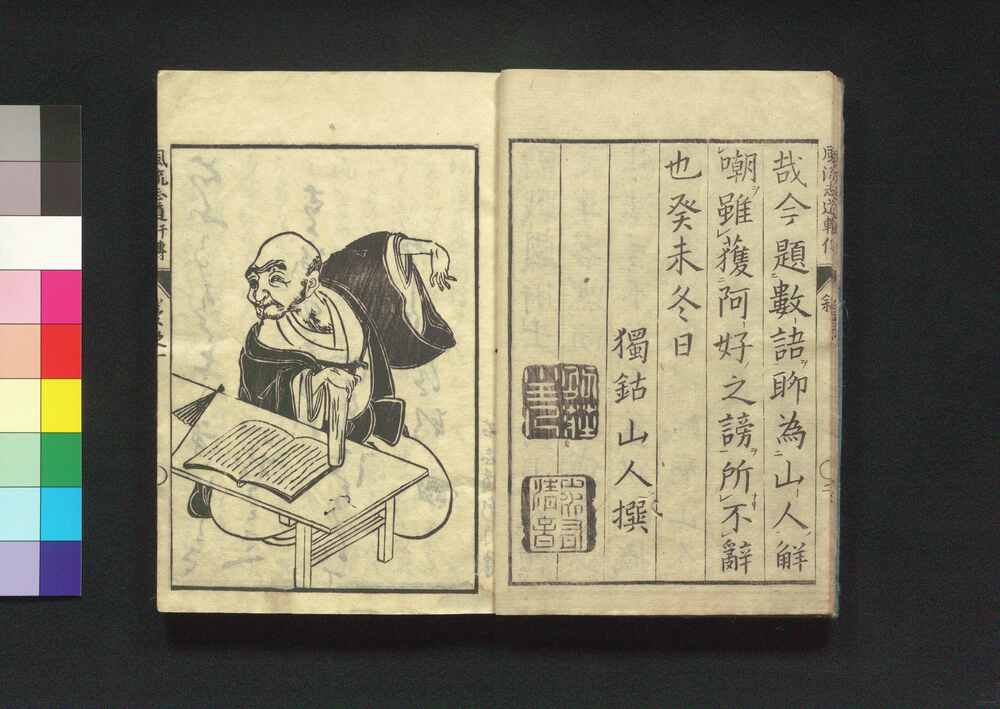 風流志道軒傳
叙
哉今題數語聊為山人解
嘲雖獲阿好之謗所不辭
也癸未冬日
獨鈷山人撰
風流志道軒傳
巻之一